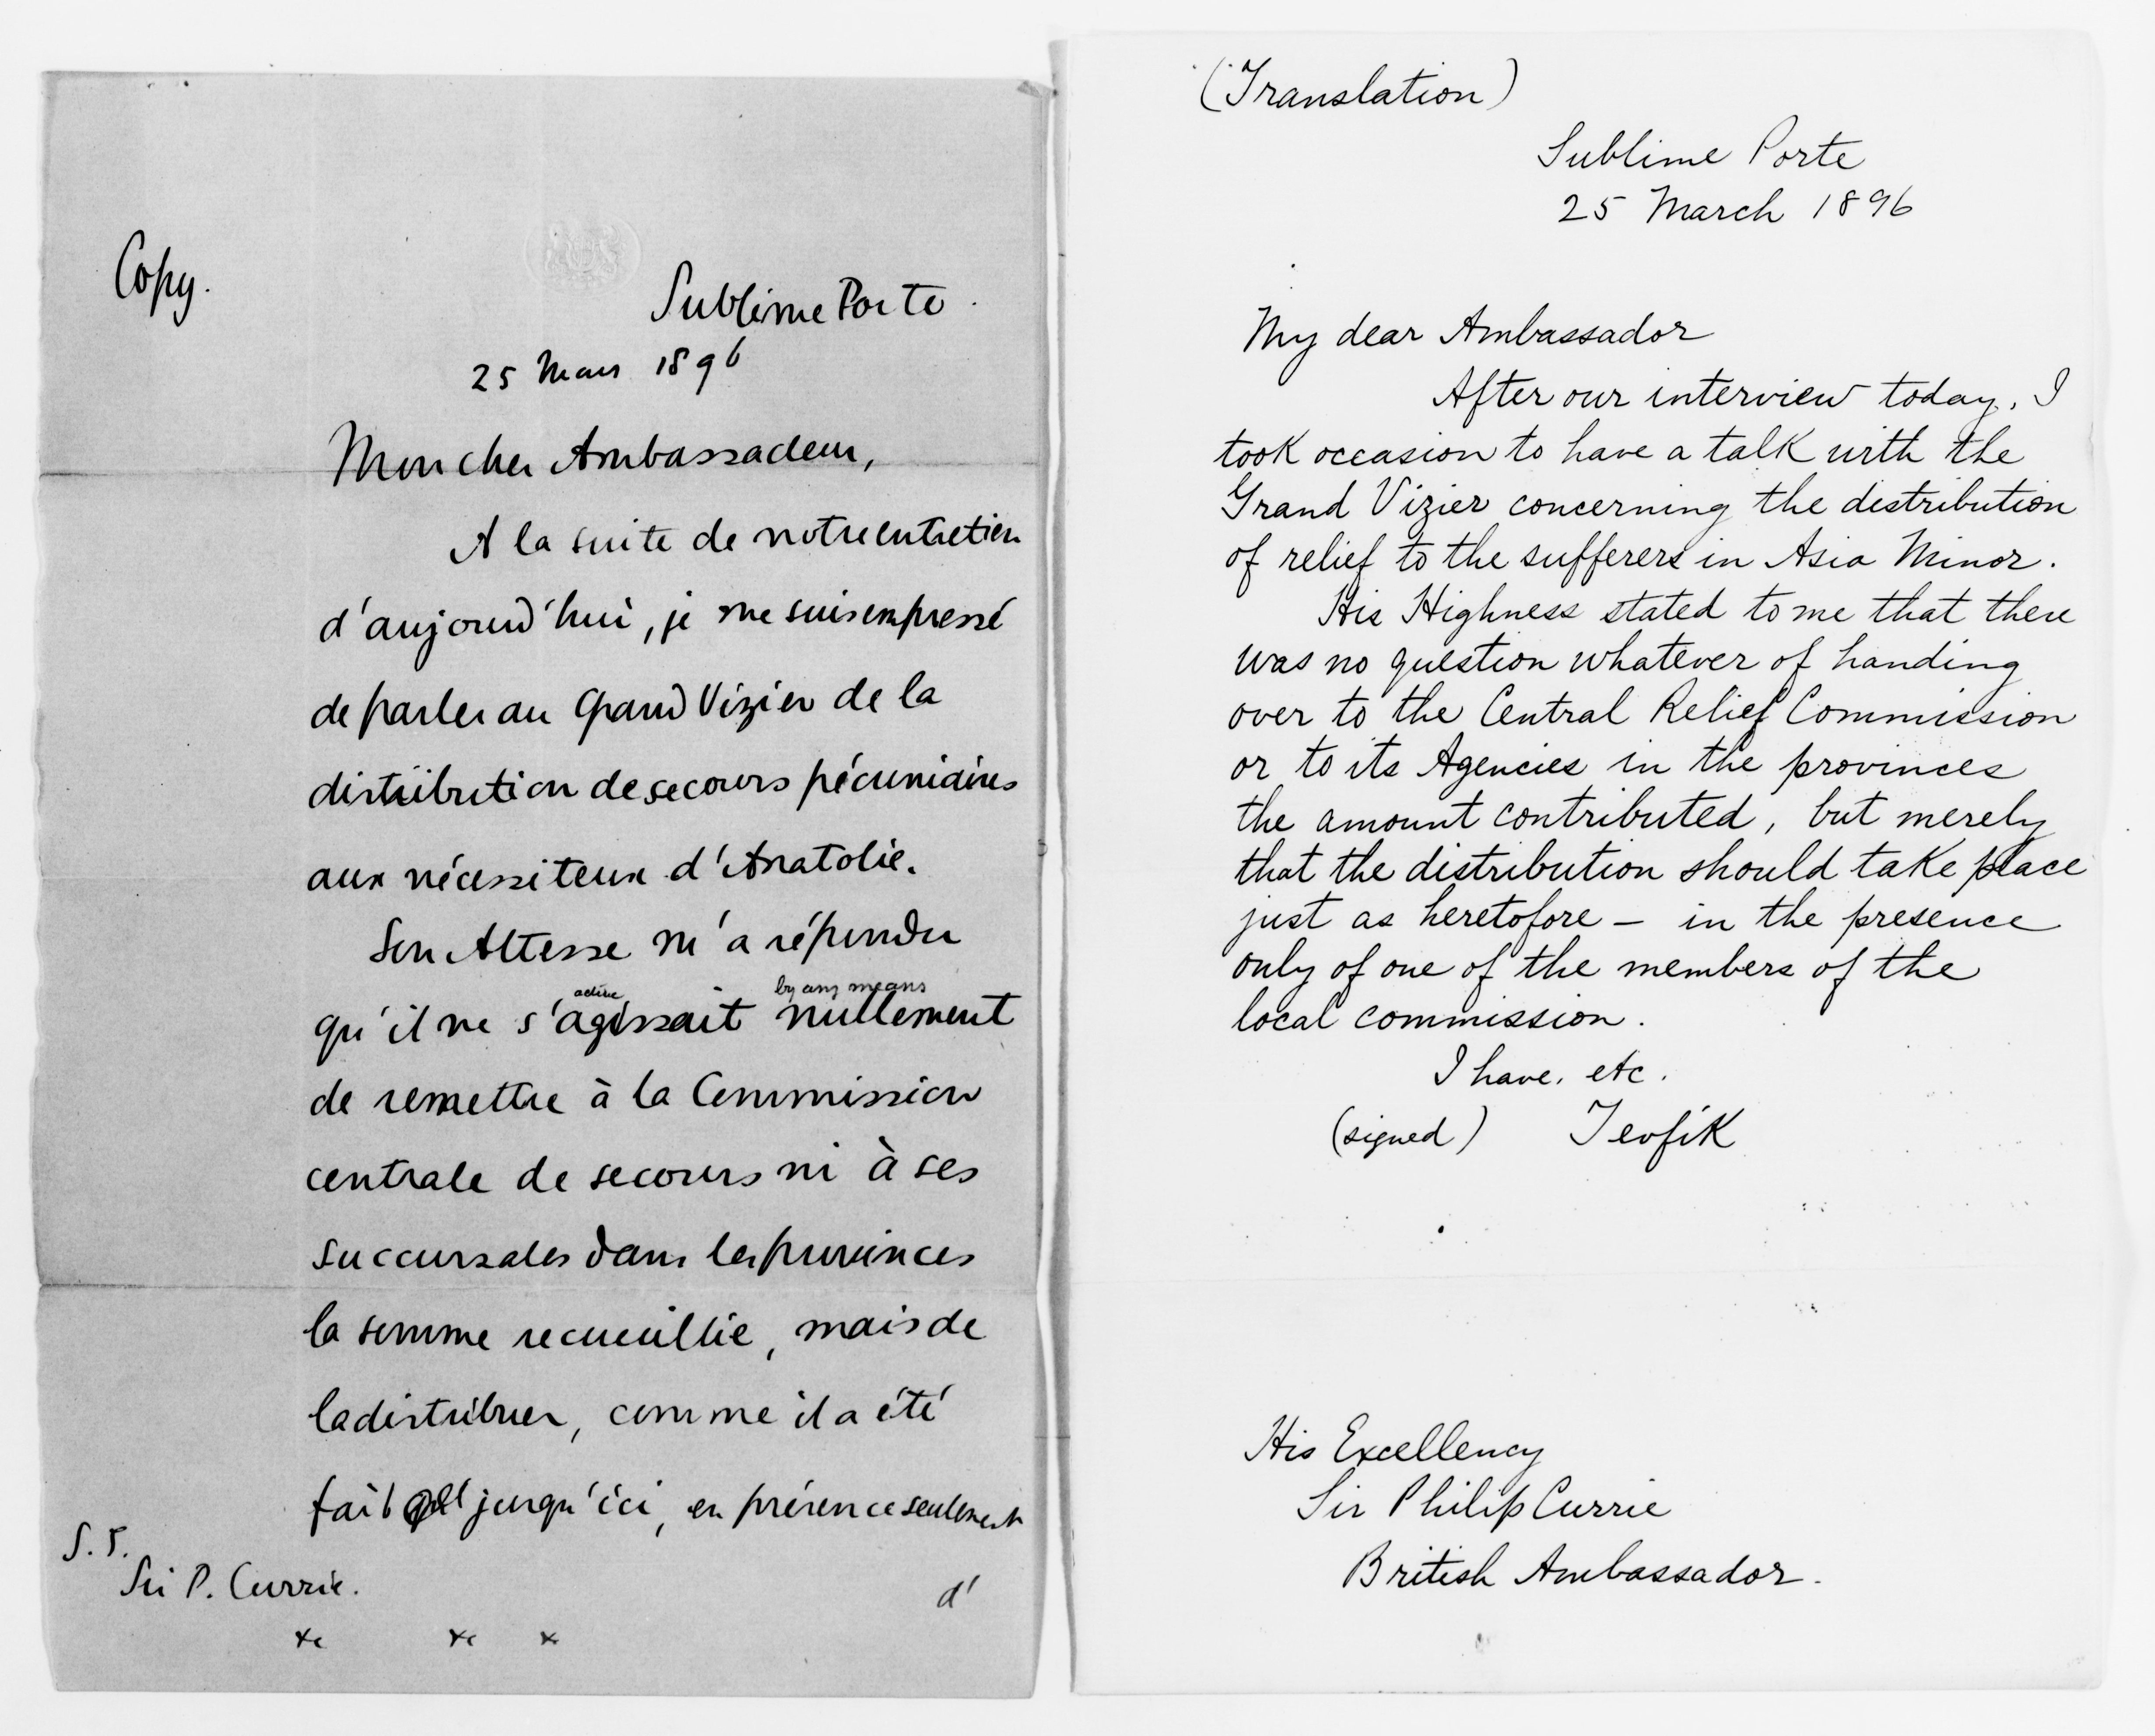 Copy.
Sublime Porte
25 Mars 1896
Mon cher Ambassadeur,
A la suite de notre entretien
d'aujourd'hui, je me suis empressé
de parler au Grand Vizier de la
distribution de secours pécuniaires
aux nécessiteux d'Anatolie.
Son Altesse m'a répondu
by any means
qu'il ne s'agissait nullement
de remettre à la Commission
centrale de secours ni à ses
succursales dans les provinces
la somme recueillie, mais de
la distribuer, comme il a été
fait jusqu'ici, en présence seulement
S. E.
Sir P. Currie.
d'
(Translation)
Sublime Porte
25 March 1896
My dear Ambassador
After our interview today, I
took occasion to have a talk with the
Grand Vizier concerning the distribution
of relief to the sufferers in Asia Minor.
His Highness stated to me that there
was no question whatever of handing
over to the Central Relief Commission
or to its Agencies in the provinces
the amount contributed, but merely
that the distribution should take place
just as heretofore — in the presence
only of one of the members of the
local commission.
I have, etc.
(signed) Tevfik
His Excellency
Sir Philip Currie
British Ambassador.